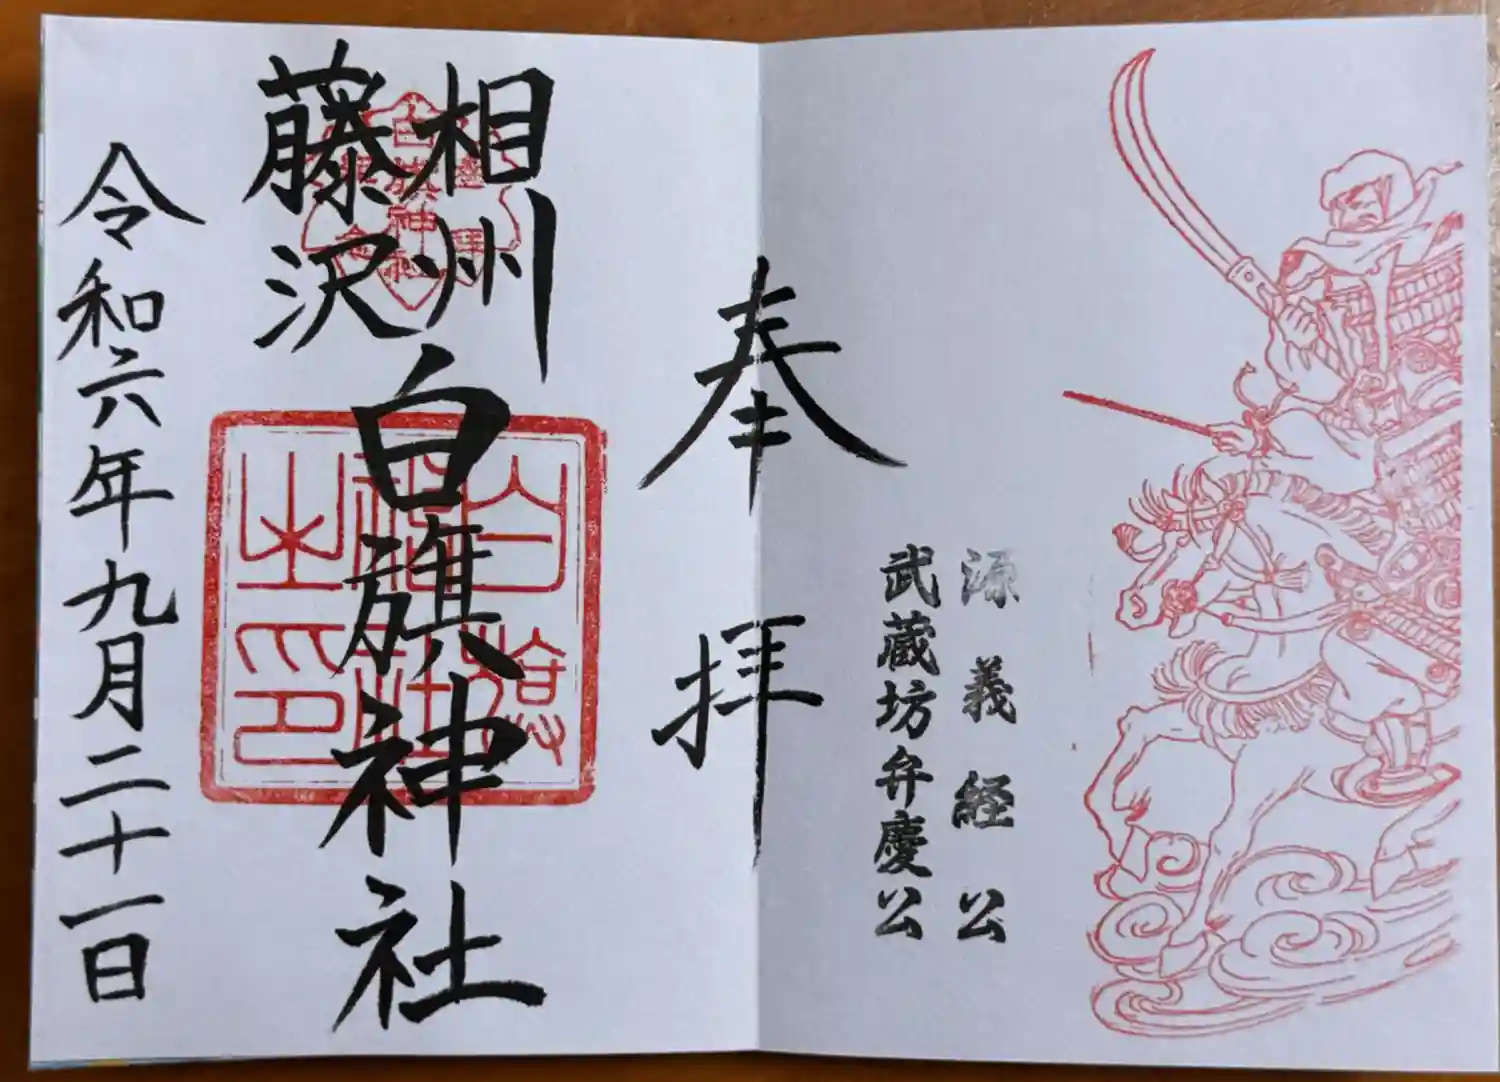 源義経公
武蔵坊弁慶公
奉拝
相州
藤沢
白旗神社
令和六年九月二十一日